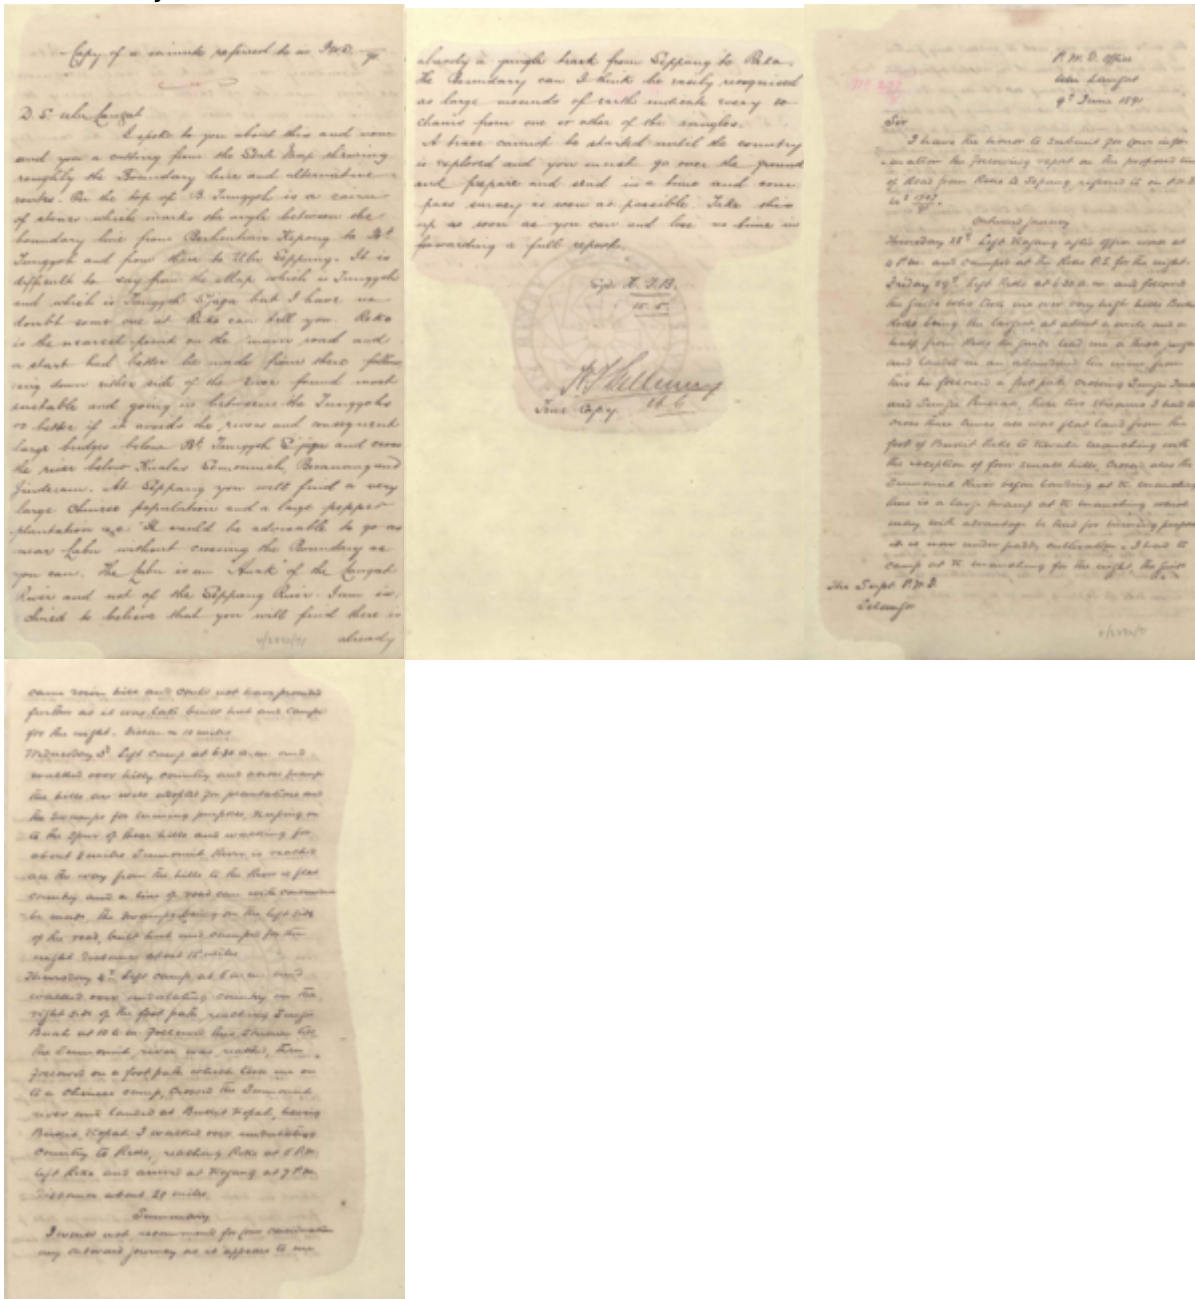 Copy of a minute referred to in P.W.D.
D. E. Ulu Langat
I spoke to you about this and now
send you a cutting from the State Map showing
roughly the Boundary line and alternative
routes. On the top of B. Tunggoh is a cairn
of stones which marks the angle between the
boundary line from Berhentian Kepong to Bt.
Tunggoh and from there to Ulu Sippang. It is
difficult to say from the Map which is Tunggoh
and which is Tunggoh Djaga but I have no
doubt some one at Reko can tell you. Reko
is the nearest point on the main road and
a start had better be made from there follow
ing down either side of the River found most
suitable and going in between the Tunggohs
or better if it avoids the rivers and consequent
large bridges below Bt. Tunggoh and cross
the river below Kualas Semounieh, Beranang and
Jinderam. At Sippang you will find a very
large Chinese population and a large pepper
plantation. It would be advisable to go as
near Labu without crossing the Boundary as
you can. The Labu is an "Anak" of the Langat
River and not of the Sippang River. I am in
clined to believe that you will find there is
already
already a jungle track from Sippang to Reko.
The Boundary can I think be easily recognised
as large mounds of earth indicate every 10
chains from one or other of the angles.
A trace cannot be started until the country
is explored and you must go over the ground
and prepare and send in a time and com
pass survey as soon as possible. Take this
up as soon as you can and lose no time in
forwarding a full report.
Sgd. H. F. B.
True Copy.
P. W. D. Office
Ulu Langat
9th June 1891
Sir
I have the honor to submit for your infor-
-mation the following report on the proposed line
of Road from Reko to Sepang referred to in P.W.D.
Outward journey
Thursday 28th Left Kajang after office work at
4 P.M. and camped at the Reko P.S. for the night.
Friday 29th Left Reko at 6.30 a.m. and followed
the guide who took me over very high hills Bukit
Reko being the largest at about a mile and a
half from Reko the guide lead me a thick jungle
and landed in an abandoned tin mine from
this he followed a foot path crossing Sungei
and Sungei these two streams I had to
cross three times all was flat land from the
foot of Bukit Reko to
the exception of four small hills, crossed also the
Semounieh River before landing at
this is a large swamp at
may with advantage be used for mining purposes
it is now under paddy cultivation. I had to
camp at for the night, the first
The Supt P.W.D
Selangor
came down hill and could not have proceeded
further as it was late built hut and camped
for the night. Distance 10 miles
Wednesday 3rd Left camp at 6.30 a.m. and
walked over hilly country and across swamps
the hills are well adapted for plantations and
the swamps for mining purposes, keeping on
to the spur of these hills and walking for
about 8 miles Semounieh River is reached
all the way from the hills to the River is flat
country and a line of road can with convenience
be made, the swamps being on the left side
of the road, built hut and camped for the
night distance about 15 miles
Thursday 4th Left camp at 6 a.m. and
walked over undulating country on the
right side of the foot path, reaching Sungei
Buah at 10 a.m. Followed this stream till
the Semounieh river was reached, then
followed on a foot path which took me on
to a Chinese camp, crossed the Semounieh
river and landed at Bukit Kopal, leaving
Bukit Kopal I walked over undulating
country to Reko, reaching Reko at 5 P.M.
left Reko and arrived at Kajang at 7 P.M.
Distance about 20 miles.
Summary
I would not recommend for your consideration
my outward journey as it appears to me